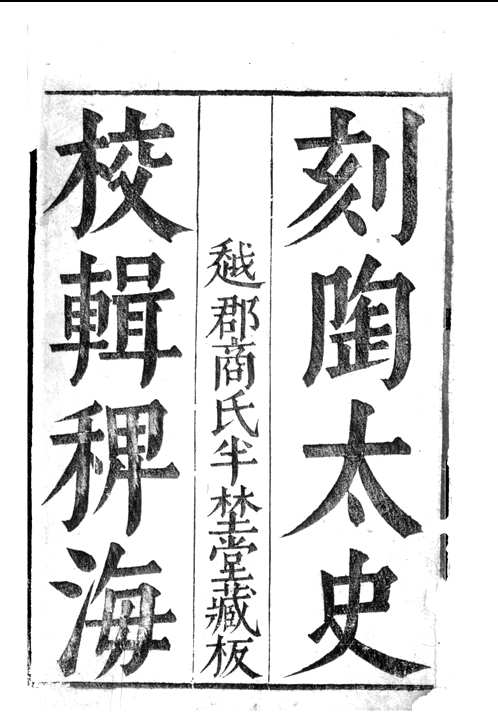 刻陶太史
越郡商氏半埜堂藏板
校輯稗海